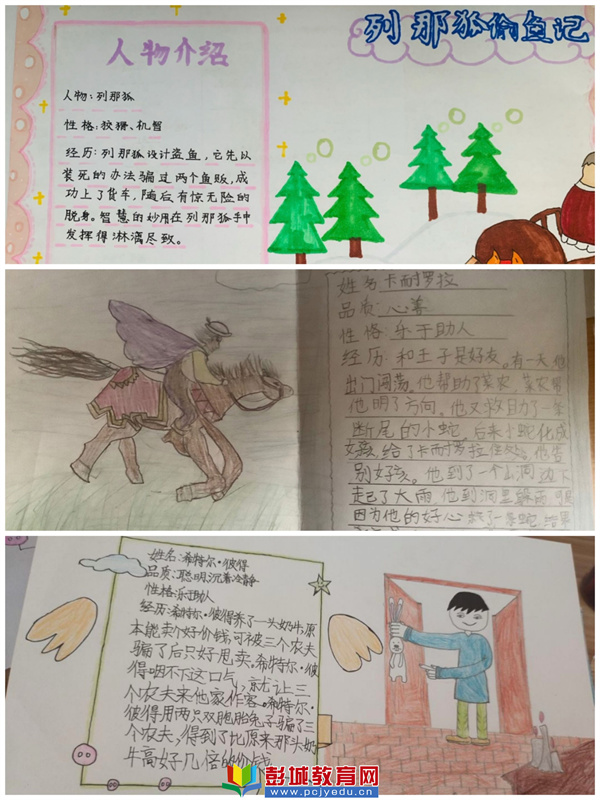 列那狐偷鱼记
人物介绍
人物:列那狐
性格:狡猾、机智
经历:列那狐设计盗鱼,它先以
装死的办法骗过两个鱼贩,成
功上了货车,随后有惊无险的
脱身。智慧的妙用在列那狐手中
发挥得淋漓尽致。
姓名:卡耐罗拉
品质:心善
性格:乐于助人
经历:和王子是好友。有一天他
出门闯荡。他帮助了菜农,菜农
他明了方向。他又救助了一条
断尾的小蛇。后来小蛇化成
女孩,给了卡耐罗拉住处。他告
别女孩。他到了一个山洞
起了大雨 他到洞里
因为他的好心 救了一条蛇
姓名:希特尔·彼得
品质:聪明,沉着冷静
性格:乐于助人
经历:希特尔·彼得养了一头奶牛,原
本能卖个好价钱,可被三个农夫
骗了后只好甩卖。希特尔·彼
得咽不下这口气,就让三
个农夫来他家作客。希特尔·
彼得用两只双胞胎兔子骗了三
个农夫,得到了比原来那头奶
牛高好几倍的价钱
彭城教育网
www.pcjyedu.cn